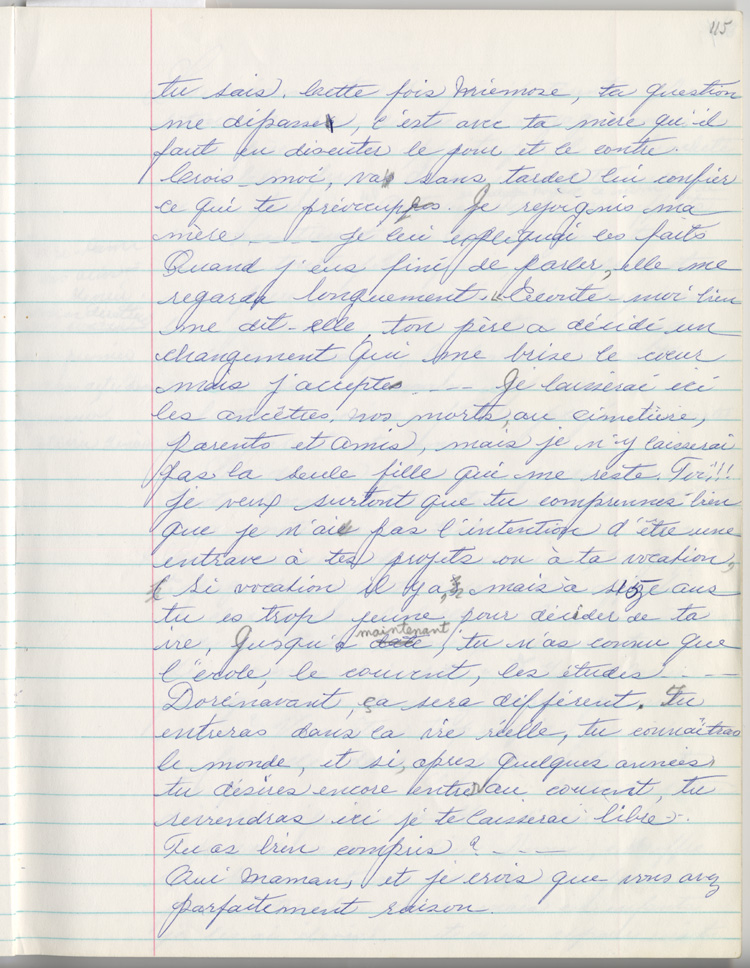 115
tu sais. Cette fois Miemose, ta question
me dépasse, c'est avec ta mère qu'il
faut en discuter le pour et le contre.
Crois-moi, va sans tarder lui confier
ce qui te préoccupes. Je rejoignis ma
mère ---- je lui expliquai les faits
Quand j'eus fini de parler, elle me
regarda longuement. "Écoute-moi bien
me dit-elle, ton père a décidé un
changement qui me brise le cœur
mais j'accepte ---- Je laisserai ici
les ancêtres, nos morts, au cimetière,
parents et amis, mais je n'y laisserai
pas la seule fille qui me reste. Toi!!!
je veux surtout que tu comprennes bien
que je n'ai pas l'intention d'être une
entrave à tes projets ou à ta vocation,
Si vocation il y a, mais à 15 ans
tu es trop jeune pour décider de ta
vie, Jusqu'à maintenant tu n'as connu que
l'école, le couvent, les études ----
Dorénavant, ça sera différent. Tu
entreras dans la vie réelle, tu connaîtras
le monde, et si, après quelques années
tu désires encore entrer au couvent, tu
reviendras ici je te laisserai libre.
Tu as bien compris? ----
Oui Maman, et je crois que vous avez
parfaitement raison.